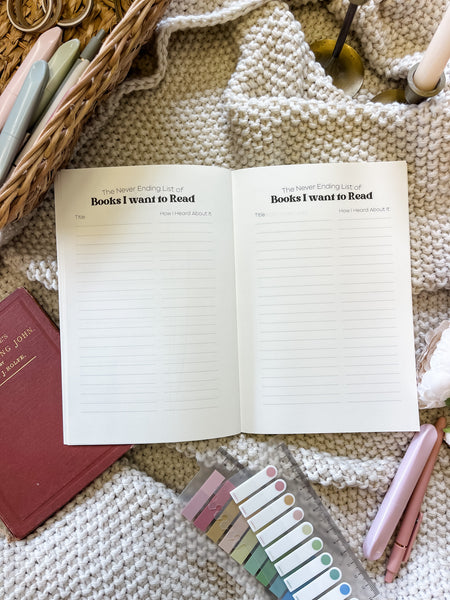 The Never Ending List of
Books I want to Read
Title
How I Heard About It
The Never Ending List of
Books I want to Read
Title
How I Heard About It
JOHN.
BY